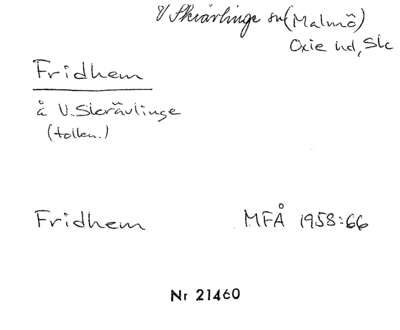 V Skrävlinge sn (Malmö)
Oxie hd, Sk
Fridhem
å V. Skrävlinge
(tolkn.)
Fridhem MFÅ 1958:66
Nr 21460